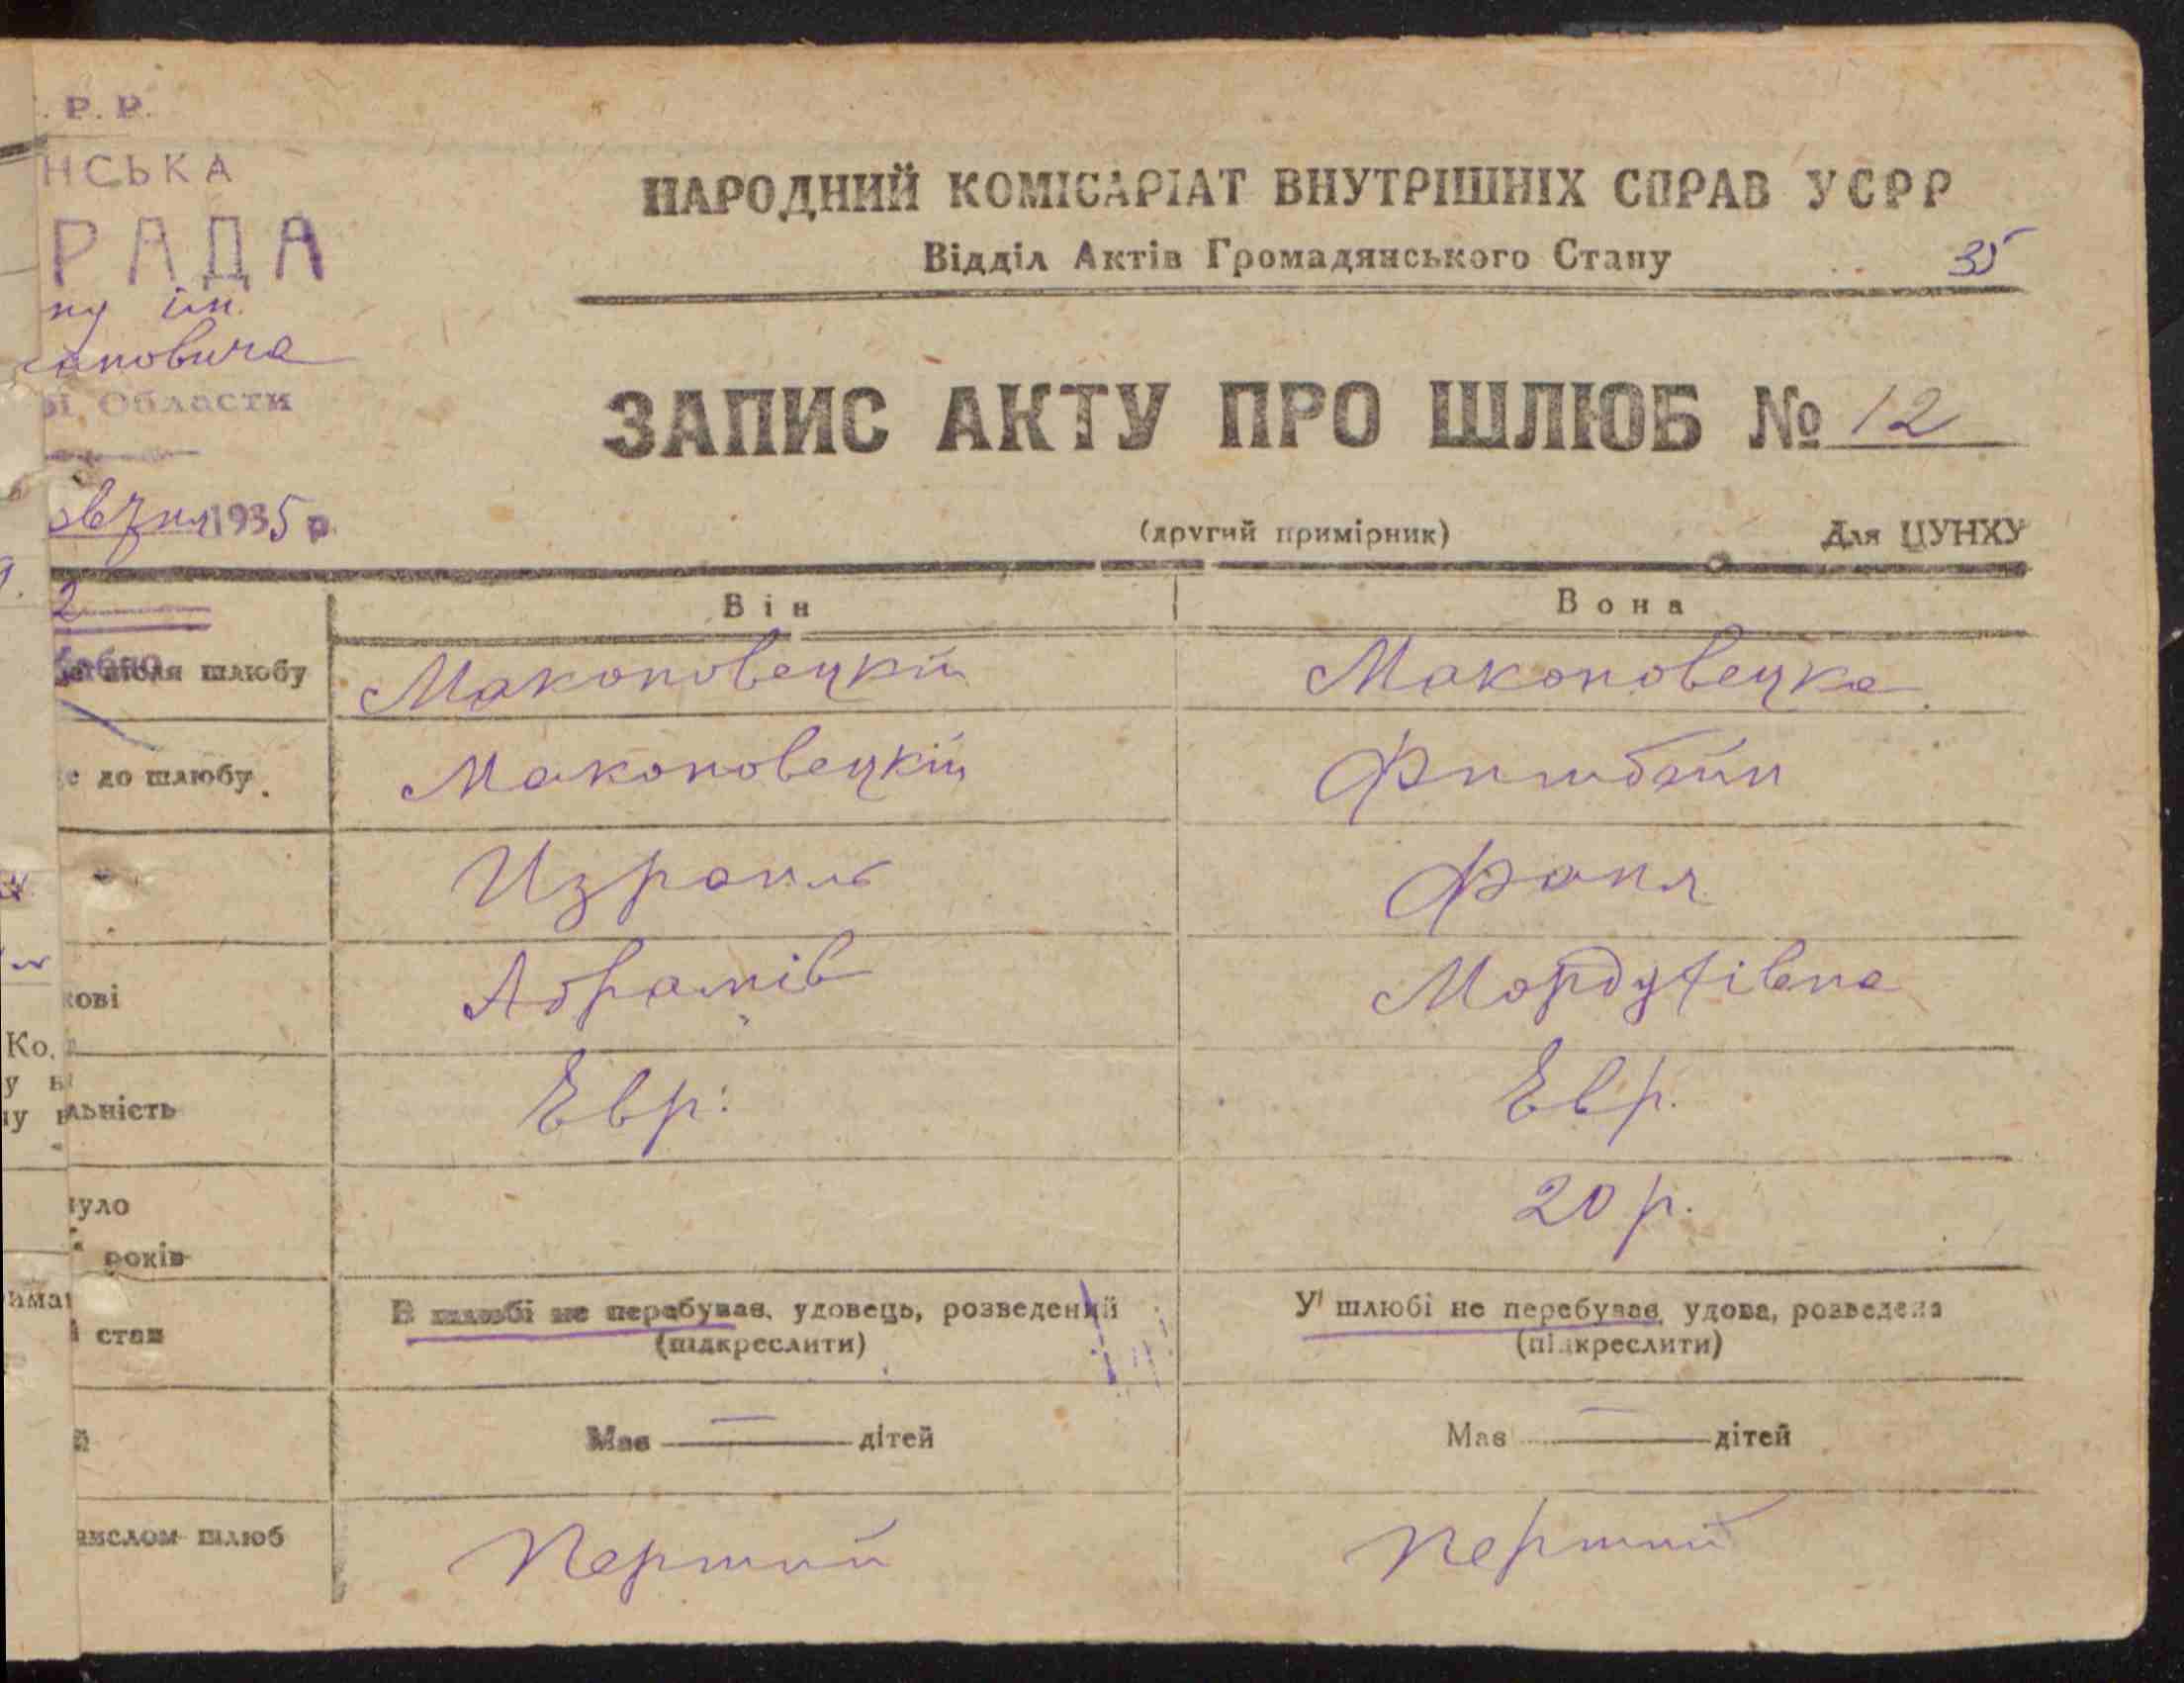 . Р. Р.
НСЬКА
РАДА
ну ім.
ановича
ої Области
овтня 1935 р.
2
НАРОДНИЙ КОМІСАРІАТ ВНУТРІШНІХ СПРАВ УСРР
Відділ Актів Громадянського Стану
35
ЗАПИС АКТУ ПРО ШЛЮБ № 12
(другий примірник) Для ЦУНХУ
Він Вона
після шлюбу Маконовецкий Маконовецка
е до шлюбу Маконовецкій Фишбейн
Израиль Фаня
кові Абрамів Мордухівна
Ко.
у в
у в
льність Евр: Евр.
нуло
років 20 р.
има
стан В шлюбі не перебував, удовець, розведений У шлюбі не перебував, удова, розведена
(підкреслити) (підкреслити)
й Має — дітей Має — дітей
числом шлюб Перший Перший